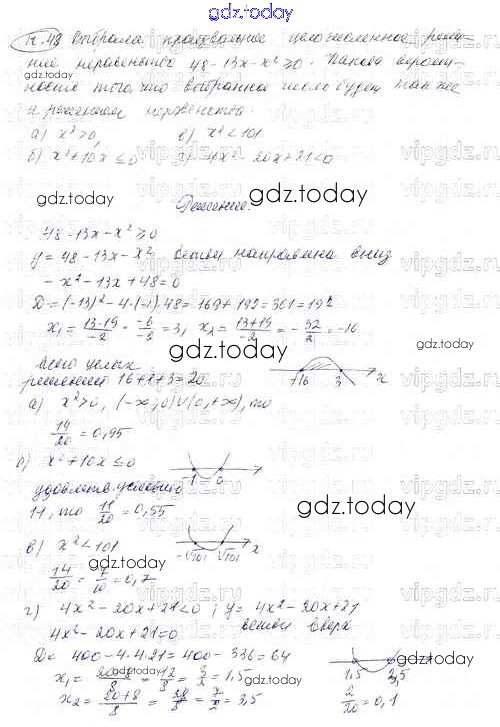 gdz.today
К.48 Выбрала произвольное целочисленное реше-
ние неравенства 48-13x-x²≥0. Какова вероят-
ность того, что выбранное число будет также
и решением неравенства:
а) x²>0 в) x²<101
б) x²+10x≤0 г) 4x²-20x+21<0
gdz.today
gdz.today
Решение:
48-13x-x²≥0
y=48-13x-x² ветви направлена вниз
-x²-13x+48=0
D=(-13)²-4·(-1)·48=169+192=361=19²
x₁=\frac{13-19}{-2}=\frac{-6}{-2}=3, x₂=\frac{13+19}{-2}=-\frac{32}{2}=-16
gdz.today
всего целых
решений 16+1+3=20
-16 3 x
а) x²>0, (-∞;0)∪(0,+∞), то
\frac{19}{20}=0,95
б) x²+10x≤0
удовлетв. условию
11, то \frac{11}{20}=0,55
gdz.today
в) x²<101
-√101 √101 x
gdz.today
\frac{14}{20}=\frac{7}{10}=0,7
г) 4x²-20x+21<0; y=4x²-20x+21
4x²-20x+21=0 ветви вверх
D=400-4·4·21=400-336=64
x₁=\frac{20-8}{8}=\frac{12}{8}=\frac{3}{2}=1,5
x₂=\frac{20+8}{8}=\frac{28}{8}=\frac{7}{2}=3,5
gdz.today
1,5 3,5
gdz.today
\frac{2}{20}=0,1
vipgdz.ru